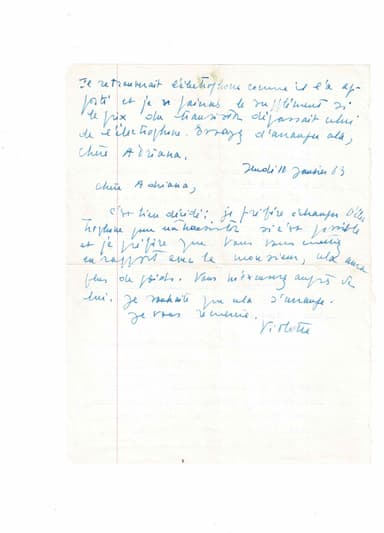 Je retournerait l'électrophone comme il l'a ap-
porté et je paierais le supplément si
le prix du transistor dépassait celui
de l'électrophone. Essayez d'arranger cela,
chère Adriana.
Jeudi 10 Janvier 63
Chère Adriana,
C'est bien décidé : je préfère échanger l'élec
trophone pour un transistor si c'est possible
et je préfère que vous vous mettiez
en rapport avec le monsieur, cela aura
plus de poids. Vous m'excuserez auprès de
lui. Je souhaite que cela s'arrange.
Je vous remercie.
Violette